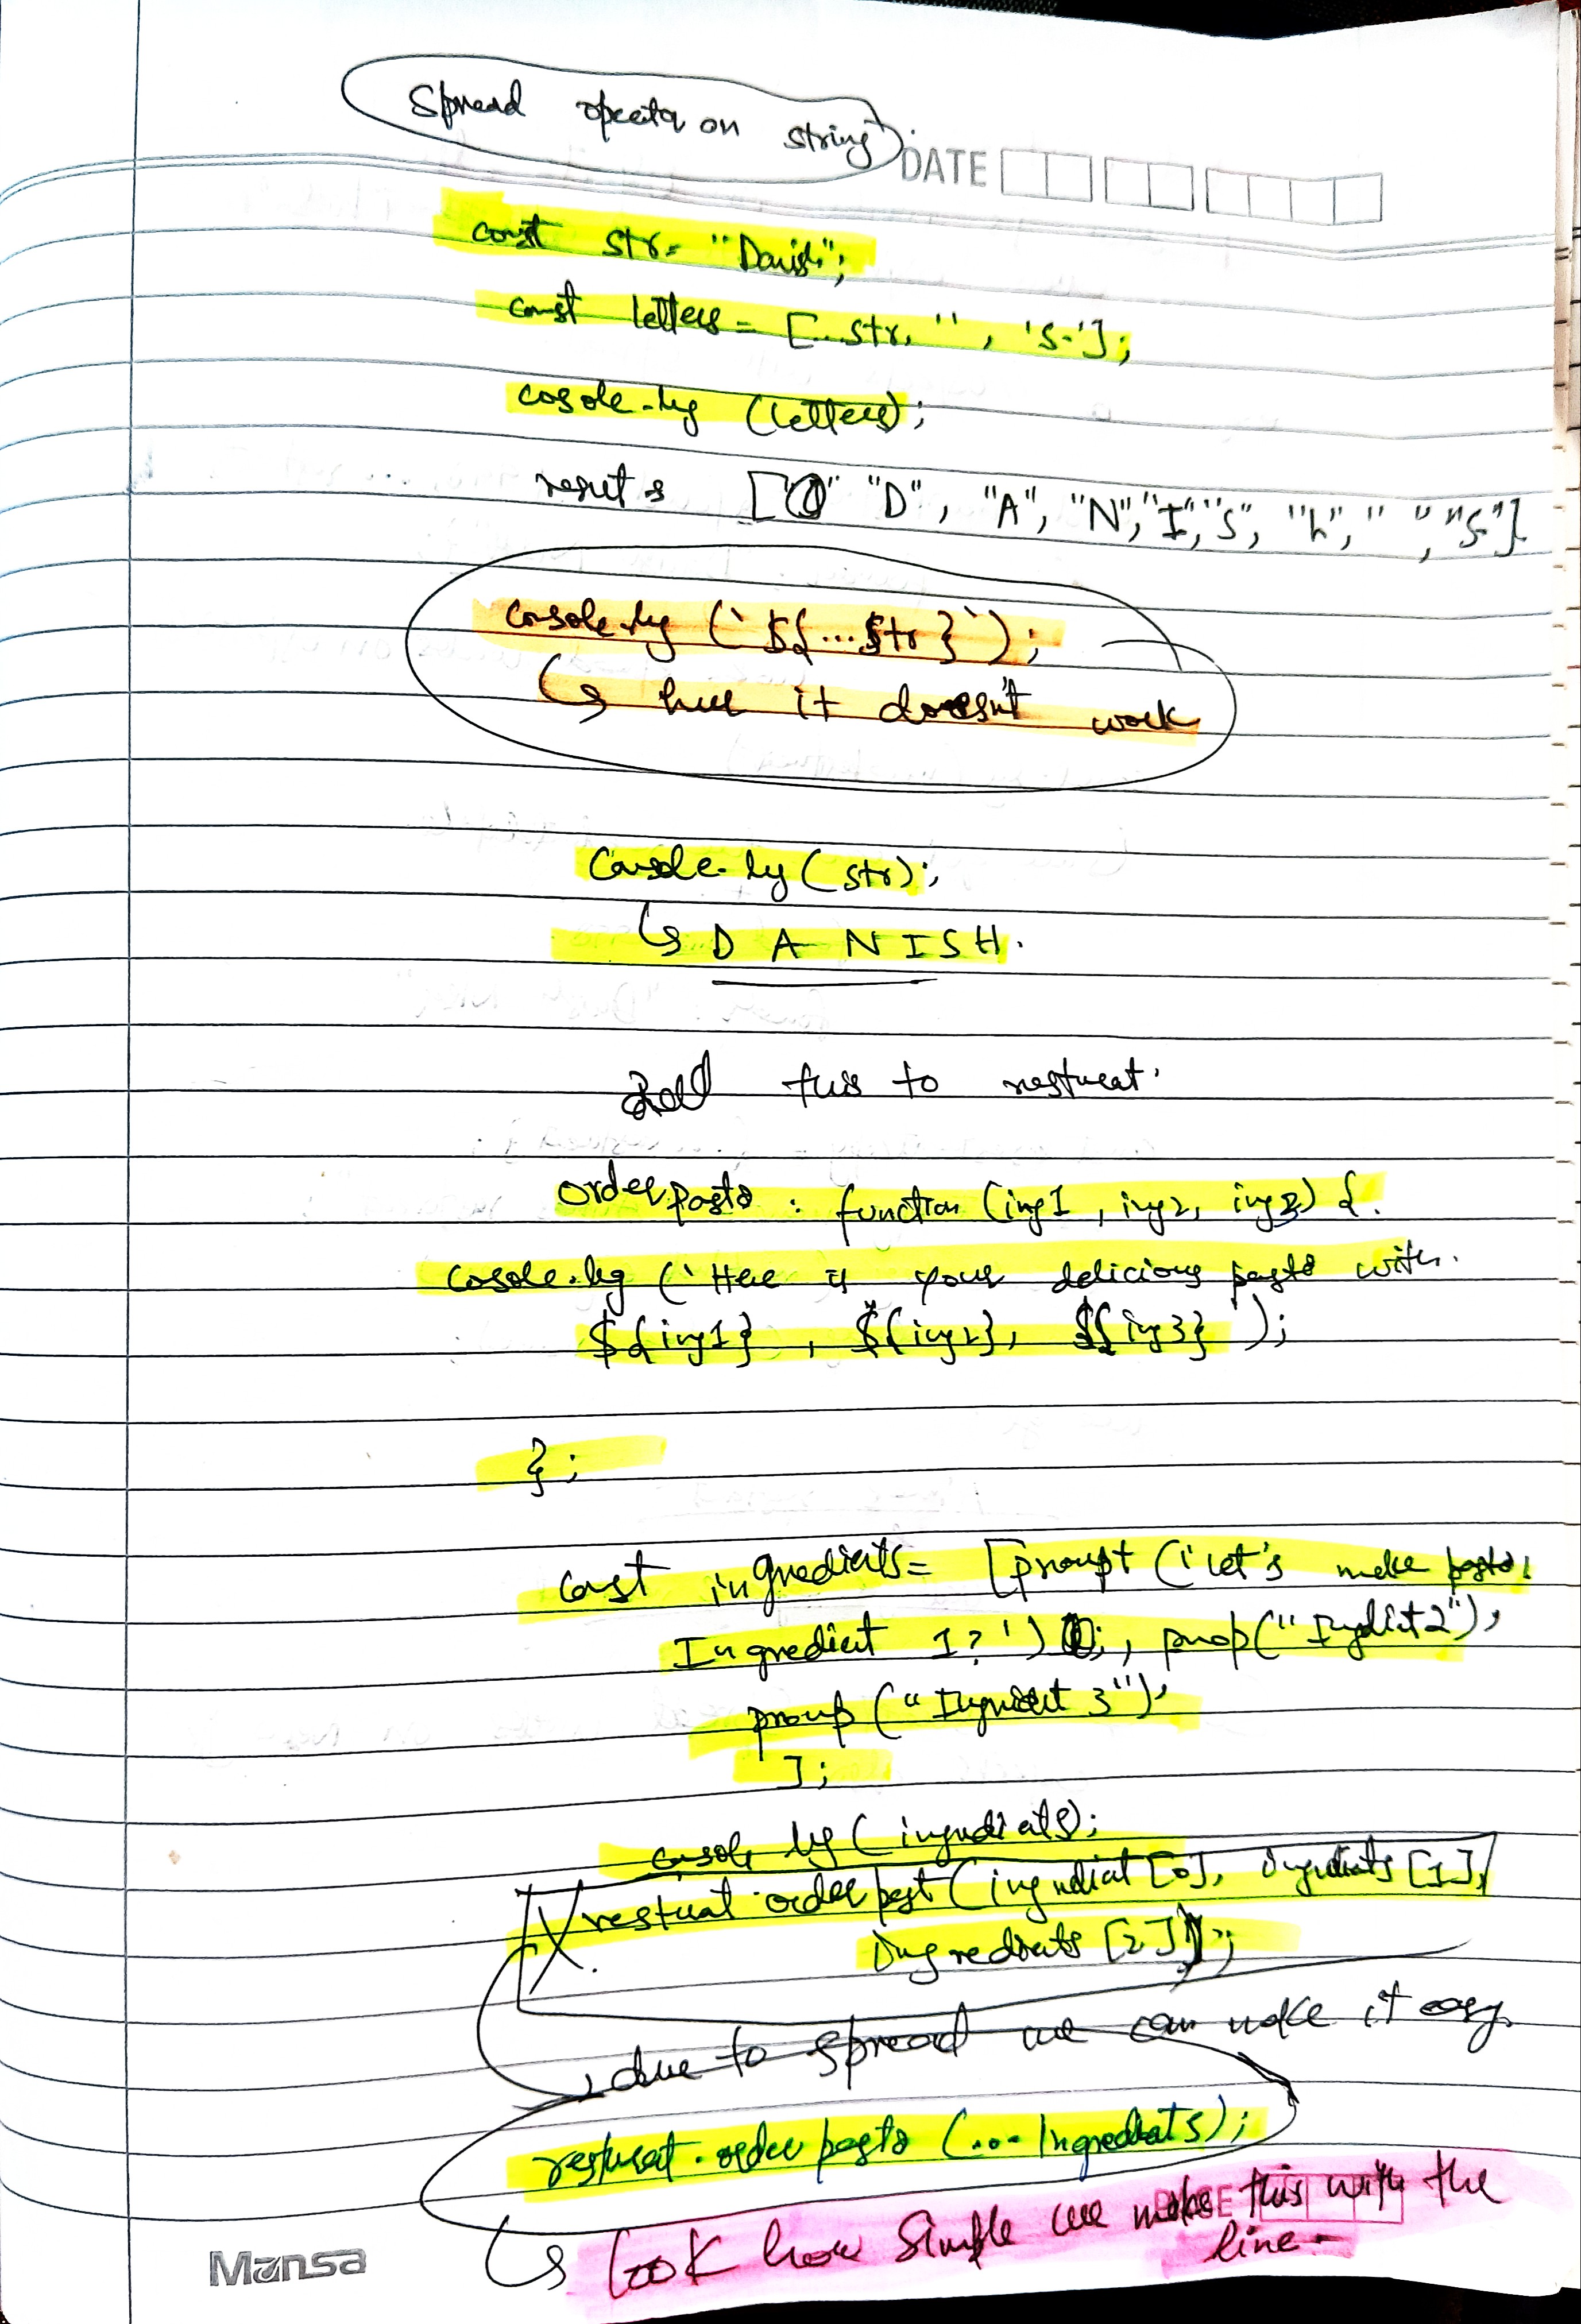 Spread opeata on string.
DATE
const str= "Danish";
const letters = [...str, '', 'S.'];
cosole.log (letters);
result ["D", "A", "N", "I", "S", "h", " ", "S."]
console.log (`${...str}`);
↳ here it doesn't work
Console.log (str);
↳ D A N I S H.
Add this to
order pasta : function (ing1, ing2, ing3) {.
cosole.log (`Here is your delicious pasta with.
${ing1}, ${ing2}, ${ing3}`);
};
const ingredients= [prompt ('Let's make pasta!
Ingredient 1?'), promp("Ingdiet2"),
promp("Ingredient 3"),
];
console log (ingrediats);
restuat.order past (ingrediat[0], ingrediats[1],
Ingredients [2]);
due to spread we can make it easy.
resturat.order pasta (...Ingrediats);
↳ look how simple we make this with the
line-
PAGE
Mansa